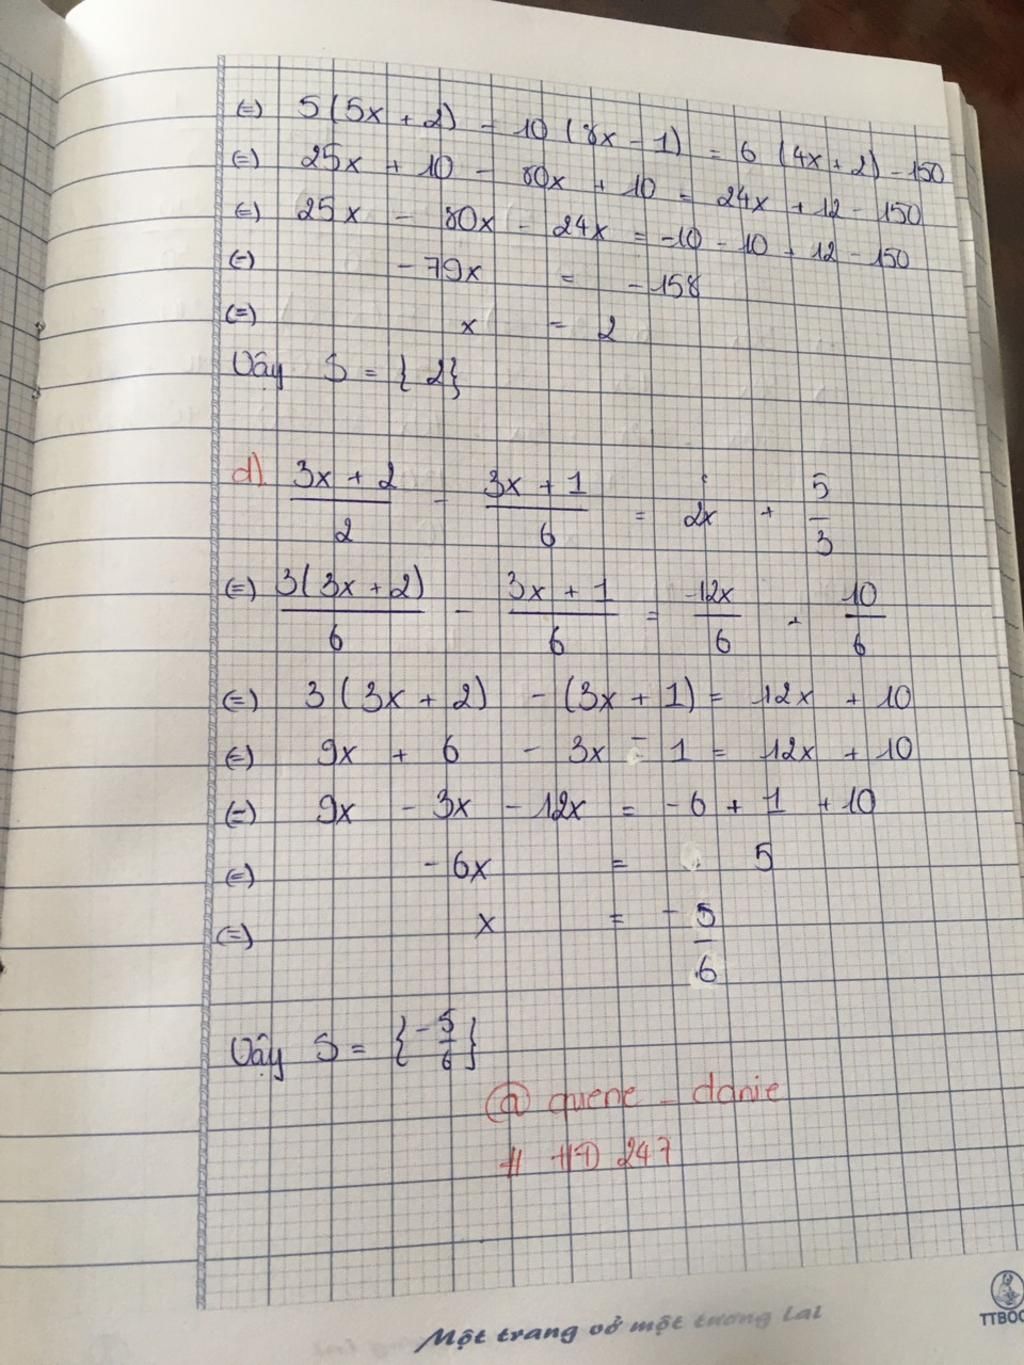 (=) 5(5x + 2) - 10(8x - 1) = 6(4x + 2) - 150
(=) 25x + 10 - 80x + 10 = 24x + 12 - 150
(=) 25x - 80x - 24x = -10 - 10 + 12 - 150
(=) - 79x = - 158
(=) x = 2
Vậy S = {2}
d) (3x + 2)/2 - (3x + 1)/6 = 2x + 5/3
(=) 3(3x + 2)/6 - (3x + 1)/6 = 12x/6 + 10/6
(=) 3(3x + 2) - (3x + 1) = 12x + 10
(=) 9x + 6 - 3x - 1 = 12x + 10
(=) 9x - 3x - 12x = - 6 + 1 + 10
(=) - 6x = 5
(=) x = - 5/6
Vậy S = {- 5/6}
@ quene _ danie
# HĐ 247
Một trang vở một tương lai
TTBOO